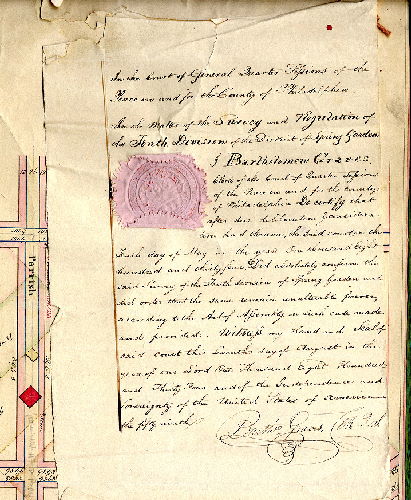 In the Court of General Quarter Sessions of the
Peace in and for the County of Philadelphia
In the Matter of the Survey and Regulation of
the Tenth Division of the District of Spring Garden
I Bartholomew Graves
Clerk of the Court of Quarter Sessions
of the Peace in and for the County
of Philadelphia Do certify that
after due deliberation
had thereon, the said court on the
day of May in the year One thousand eight
hundred and thirty four Did absolutely confirm the
said Survey of the Tenth division of Spring Garden and
did order that the same remain unalterable forever,
according to the Act of Assembly in such case made
and provided. Witness my Hand and Seal of
said Court this Seventh day of August in the
year of our Lord One Thousand Eight Hundred
and Thirty Four and of the Independence and
Sovereignty of the United States of America
the fifty ninth
Graves Clk
Parrish